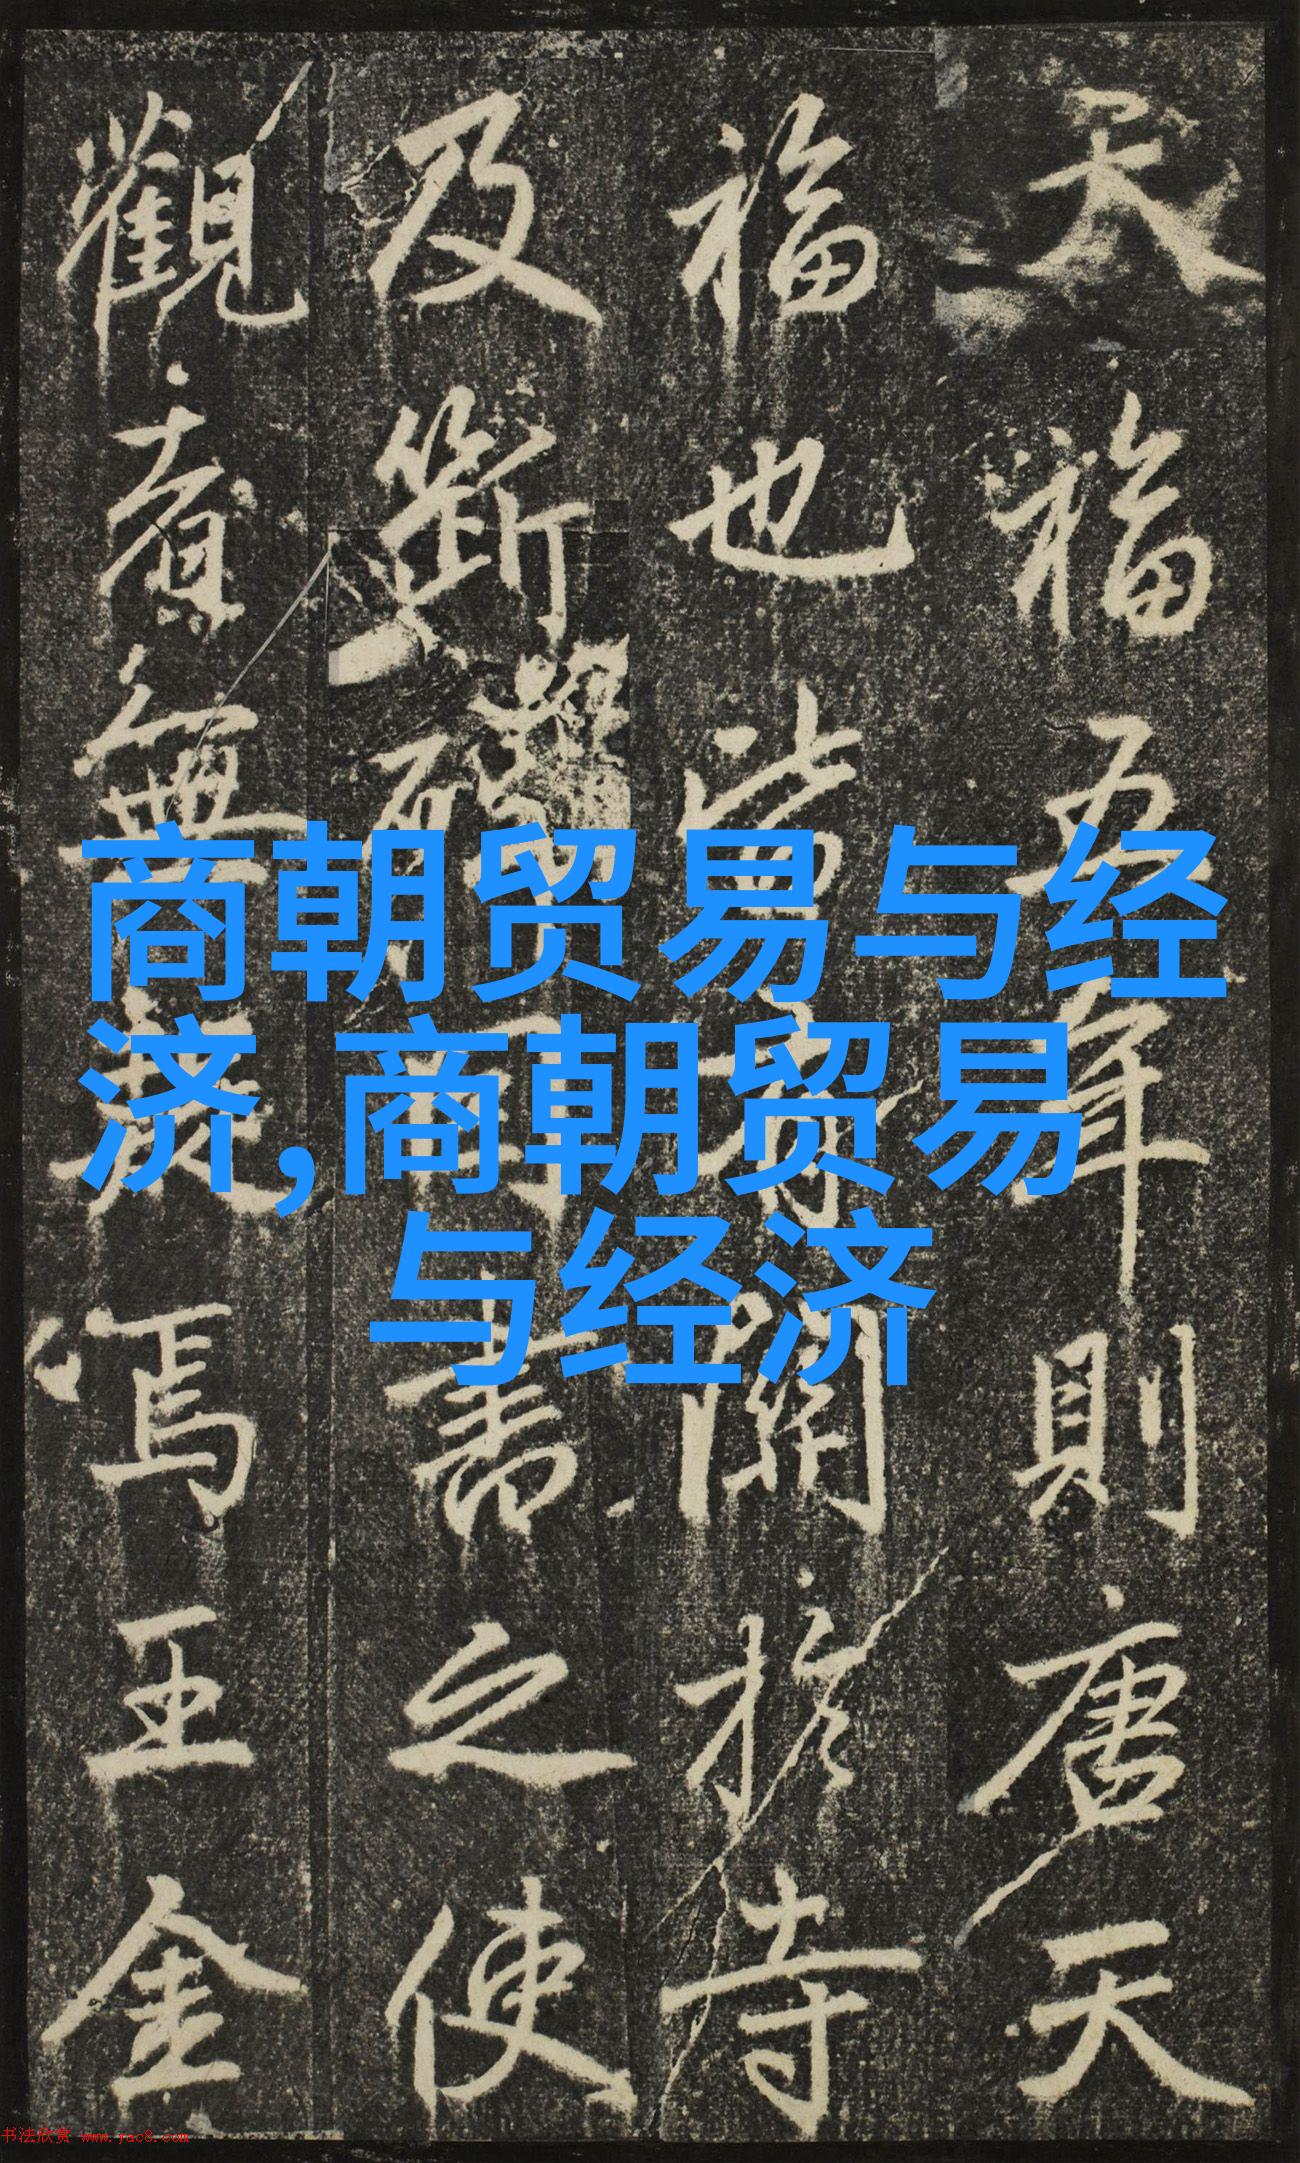 商朝贸易与经
济,商朝贸易
与经济
天福五年則唐天
福也当 関於寺
及斷 書之使
觀音無 焉王金
书法欣赏 www.yac8.com